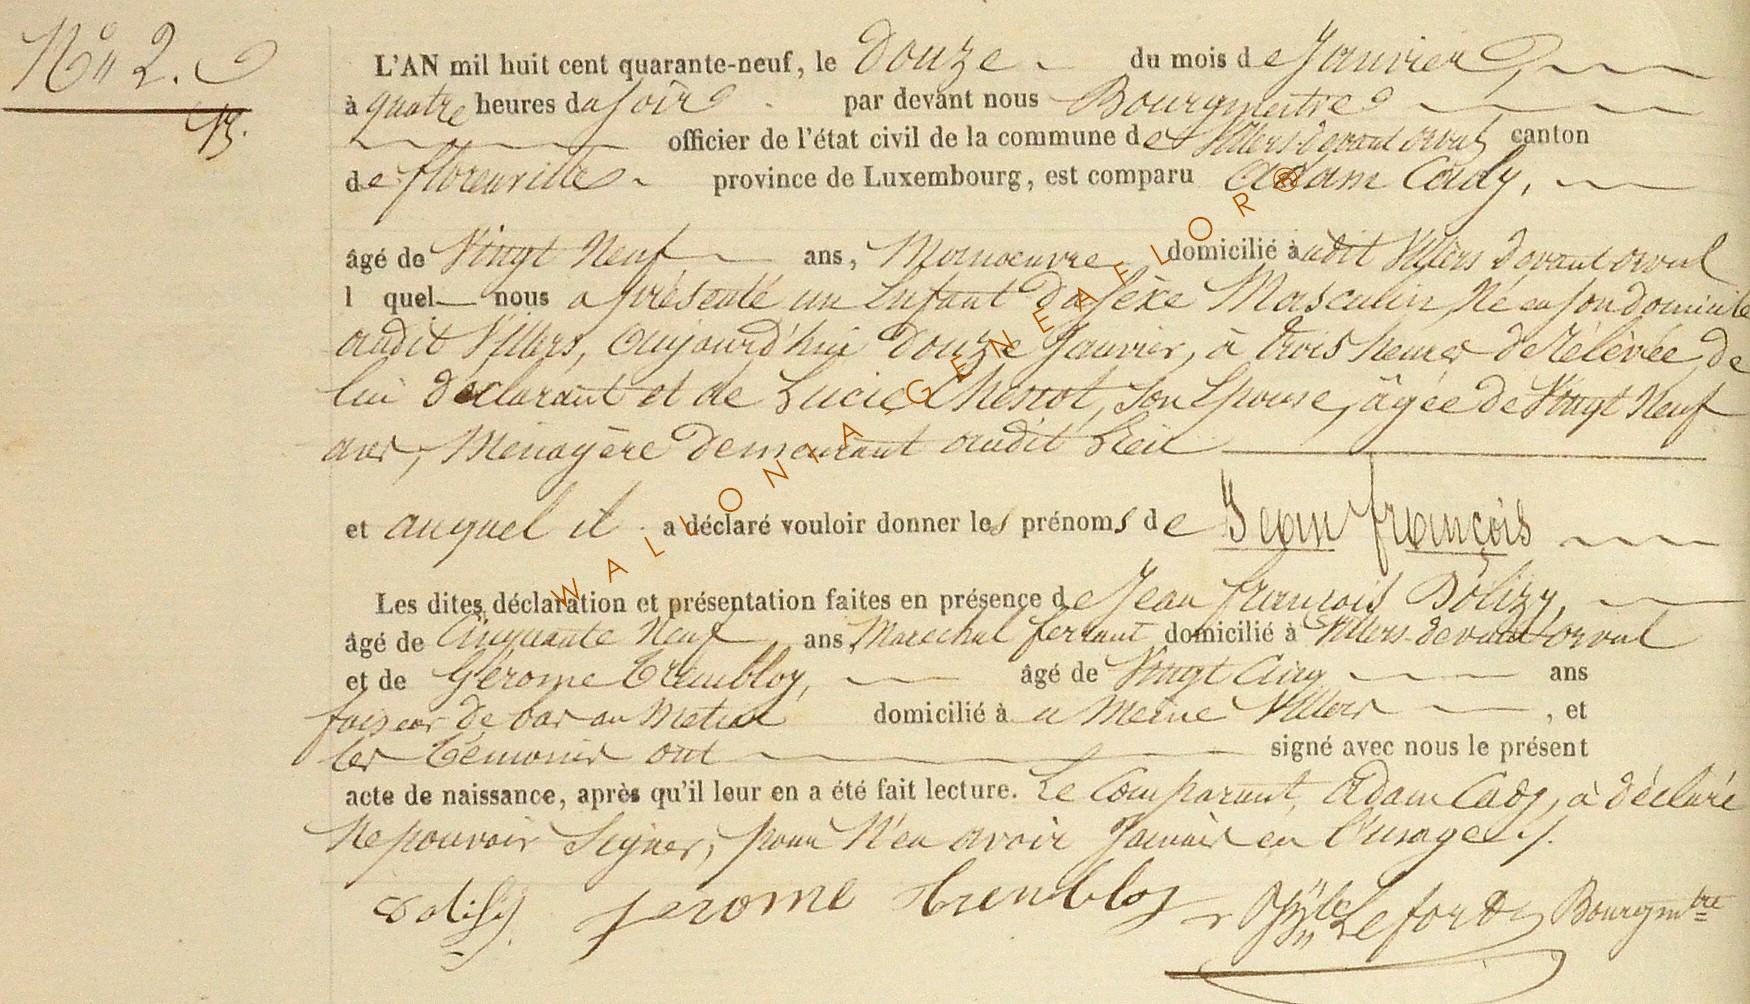 N° 2.
L'AN mil huit cent quarante-neuf, le Douze du mois de Janvier,
13.
à quatre heures du soir par devant nous Bourgmestre
officier de l'état civil de la commune de Villers devant orval canton
de florenville province de Luxembourg, est comparu Adam Cady,
âgé de Vingt Neuf ans, Manoeuvre domicilié à udit Villers devant orval
l quel nous a présenté un Enfant du sèxe Masculin, Né en son domicile
audit Villers, aujourd'hui douze Janvier, à trois heures de Rélévée, de
lui déclarant et de Lucie son Epouse, âgée de Vingt Neuf
ans, Ménagère demeurant audit Lieu
et auquel il a déclaré vouloir donner les prénoms de Jean françois
Les dites déclaration et présentation faites en présence de Jean françois Dolizy,
âgé de Cinquante Neuf ans, Marechal ferrant domicilié à Villers devant orval
et de Gérome Trembloy, âgé de Vingt Cinq ans
faiseur de bas au Metier domicilié à u Meme Villers, et
les témoins ont signé avec nous le présent
acte de naissance, après qu'il leur en a été fait lecture. Le Comparant, Adam Cady, à déclaré
Ne pouvoir Signer, pour N'en avoir Jamais eu l'usage ./.
Dolisy Jerome Trembloy Lefort Bourgmtre
WALLONIA GENEALOR®